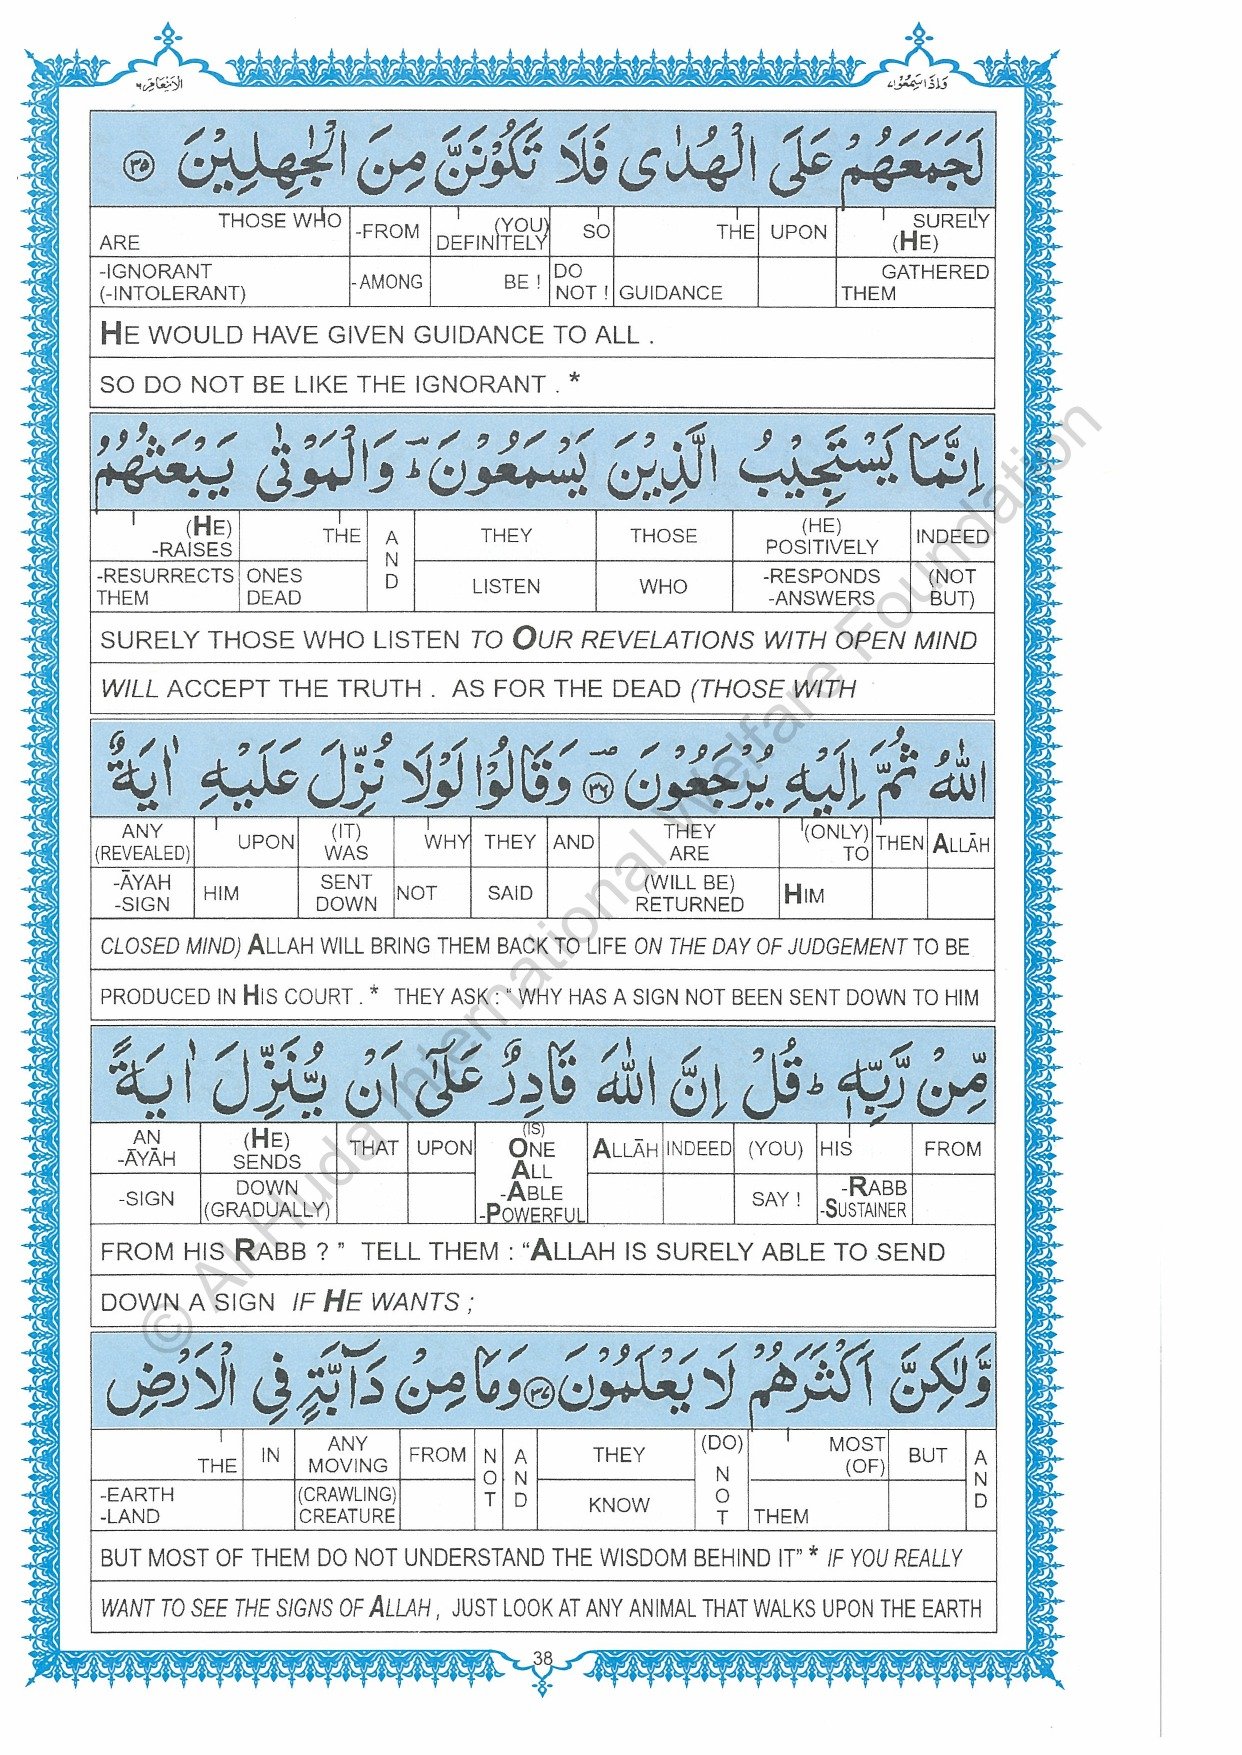 وَاِذَاسَمِعُوْا۷ الْاَنْعَام۶
لَجَمَعَهُمْ عَلَى الْهُدٰى فَلَا تَكُوْنَنَّ مِنَ الْجٰهِلِيْنَ ۳۵
THOSE WHO -FROM (YOU) SO THE UPON SURELY
ARE DEFINITELY (HE)
-IGNORANT -AMONG BE ! DO GUIDANCE GATHERED
(-INTOLERANT) NOT ! THEM
HE WOULD HAVE GIVEN GUIDANCE TO ALL .
SO DO NOT BE LIKE THE IGNORANT . *
اِنَّمَا يَسْتَجِيْبُ الَّذِيْنَ يَسْمَعُوْنَ ؕ وَالْمَوْتٰى يَبْعَثُهُمُ
(HE) THE AND THEY THOSE (HE) INDEED
-RAISES POSITIVELY
-RESURRECTS ONES LISTEN WHO -RESPONDS (NOT
THEM DEAD -ANSWERS BUT)
SURELY THOSE WHO LISTEN TO OUR REVELATIONS WITH OPEN MIND
WILL ACCEPT THE TRUTH . AS FOR THE DEAD (THOSE WITH
اللّٰهُ ثُمَّ اِلَيْهِ يُرْجَعُوْنَ ۳۶ وَقَالُوْا لَوْلَا نُزِّلَ عَلَيْهِ اٰيَةٌ
ANY UPON (IT) WHY THEY AND THEY (ONLY) THEN ALLĀH
(REVEALED) WAS ARE TO
-ĀYAH HIM SENT NOT SAID (WILL BE) HIM
-SIGN DOWN RETURNED
CLOSED MIND) ALLAH WILL BRING THEM BACK TO LIFE ON THE DAY OF JUDGEMENT TO BE
PRODUCED IN HIS COURT . * THEY ASK : “ WHY HAS A SIGN NOT BEEN SENT DOWN TO HIM
مِّنْ رَّبِّهٖ ؕ قُلْ اِنَّ اللّٰهَ قَادِرٌ عَلٰٓى اَنْ يُّنَزِّلَ اٰيَةً
AN (HE) THAT UPON (IS) ALLĀH INDEED (YOU) HIS FROM
-ĀYĀH SENDS ONE
ALL
-SIGN DOWN -ABLE SAY ! -RABB
(GRADUALLY) -POWERFUL -SUSTAINER
FROM HIS RABB ? ” TELL THEM : “ALLAH IS SURELY ABLE TO SEND
DOWN A SIGN IF HE WANTS ;
وَّلٰكِنَّ اَكْثَرَهُمْ لَا يَعْلَمُوْنَ ۳۷ وَمَا مِنْ دَآبَّةٍ فِي الْاَرْضِ
THE IN ANY FROM NOT AND THEY (DO) MOST BUT AND
MOVING NOT (OF)
-EARTH (CRAWLING) KNOW THEM
-LAND CREATURE
BUT MOST OF THEM DO NOT UNDERSTAND THE WISDOM BEHIND IT” * IF YOU REALLY
WANT TO SEE THE SIGNS OF ALLAH , JUST LOOK AT ANY ANIMAL THAT WALKS UPON THE EARTH
38
© Al-Huda International Welfare Foundation